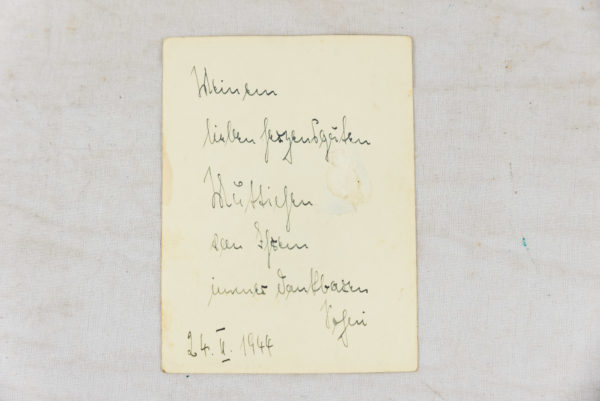 Meinem
lieben herzensguten
Muttichen
von Ihrem
immer dankbaren
24. II. 1944